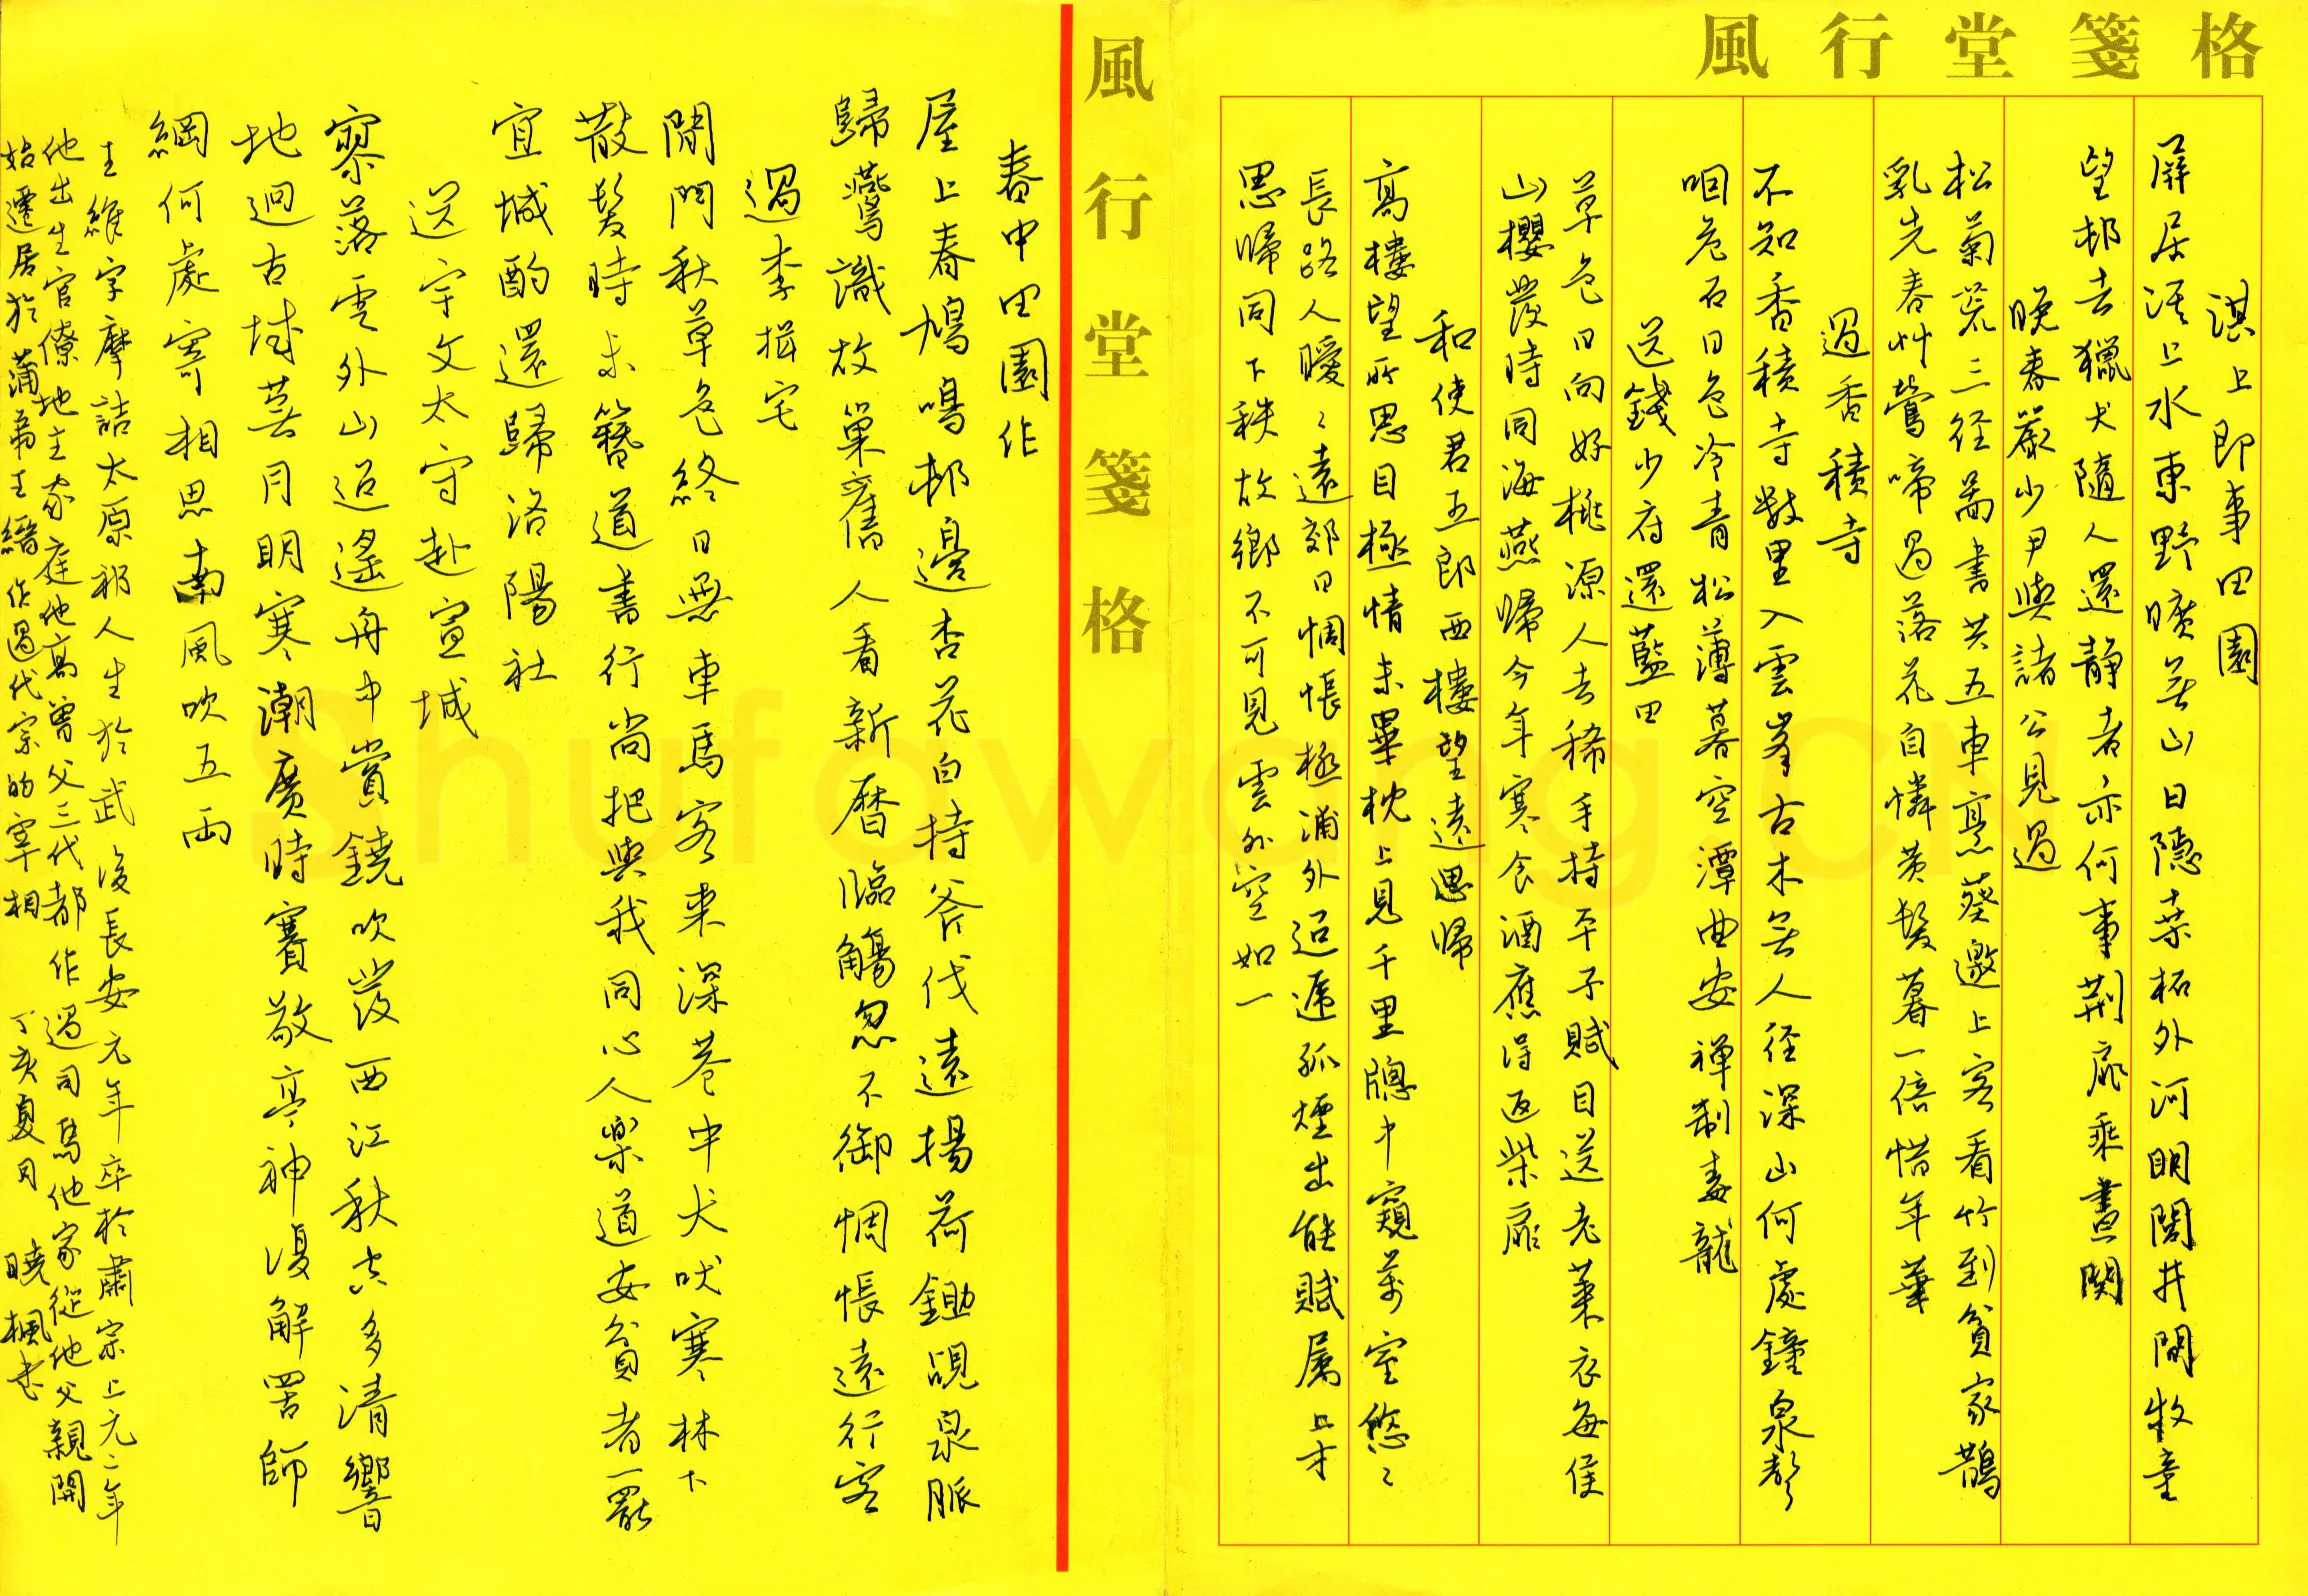 風行堂箋格
淇上即事田園
屏居淇上水東野曠無山日隱桑柘外河明閭井間牧童
望邨去獵犬隨人還靜者亦何事荆扉乘晝關
晚春嚴少尹與諸公見過
松菊荒三径圖書共五車烹葵邀上客看竹到貧家鵲
乳先春艸鶯啼過落花自憐黄髮暮一倍惜年華
過香積寺
不知香積寺數里入雲峯古木無人径深山何處鐘泉聲
咽危石日色冷青松薄暮空潭曲安禅制毒龍
送錢少府還藍田
草色日向好桃源人去稀手持平子賦目送老萊衣每侯
山櫻發時同海燕歸今年寒食酒應得返柴扉
和使君五郎西樓望遠思歸
高樓望所思目極情未畢枕上見千里牕中窺萬室悠〻
長路人曖〻遠郊日惆悵極浦外迢遞孤煙出能賦属上才
思歸同下秩故鄉不可見雲外空如一
風行堂箋格
春中田園作
屋上春鳩鳴邨邊杏花白持斧伐遠揚荷鋤覘泉脈
歸鷰識故巢舊人看新曆臨觴忽不御惆悵遠行客
過李揖宅
閒門秋草色終日無車馬客來深巷中犬吠寒林下
散髮時未簪道書行尚把與我同心人樂道安貧者一罷
宜城酌還歸洛陽社
送宇文太守赴宣城
寥落雲外山迢遙舟中賞鐃吹發西江秋空多清響
地迥古城蕪月明寒潮廣時賽敬亭神復解罟師
網何處寄相思南風吹五兩
王維字摩詰太原祁人生於武後長安元年卒於肅宗上元二年
他出生官僚地主家庭他高曾父三代都作過司馬他家從他父親開
始遷居於蒲弟王縉作過代宗的宰相 丁亥夏月 曉楓書
Shufawang.CN